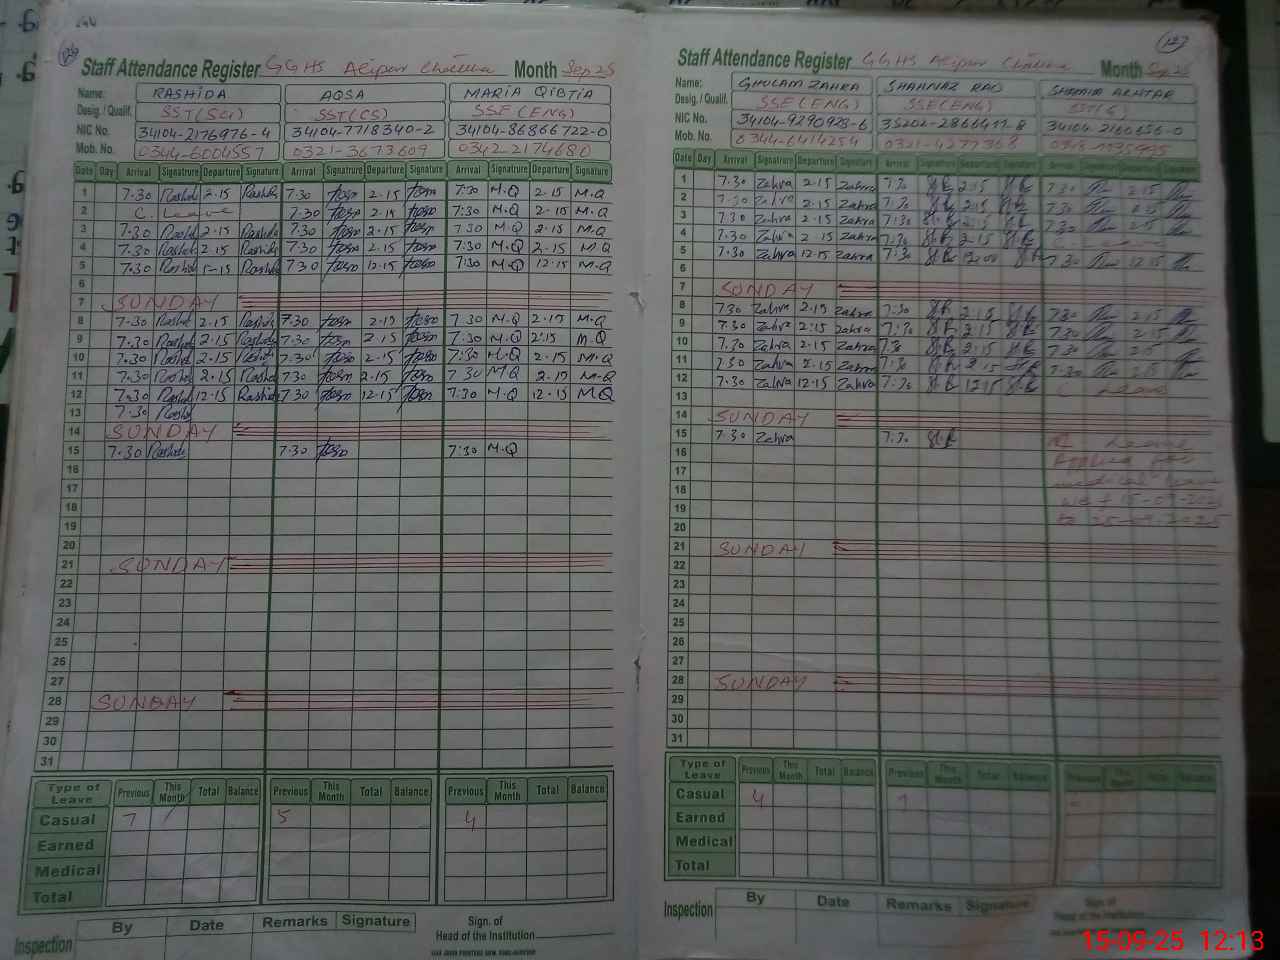 Staff Attendance Register GGHS Alipur Chattha Month Sep 25
Name: RASHIDA AQSA MARIA QIBTIA
Desig. / Qualif. SST(SCI) SST(CS) SSE(ENG)
NIC No. 34104-2176976-4 34104-7718340-2 34104-86866722-0
Mob. No. 0344-6004557 0321-3673609 0342-2174680
Date Day Arrival Signature Departure Signature Arrival Signature Departure Signature Arrival Signature Departure Signature
1 7.30 Rashida 2.15 Rashida 7.30 2.15 7:30 M.Q 2.15 M.Q
2 C. Leave 7.30 2.15 7:30 M.Q 2.15 M.Q
3 7.30 Rashida 2.15 Rashida 7.30 2.15 7.30 M.Q 2.15 M.Q
4 7.30 Rashida 2.15 Rashida 7.30 2.15 7:30 M.Q 2.15 M.Q
5 7.30 Rashida Rashida 7.30 12.15 7:30 M.Q 12.15 M.Q
6
7 SUNDAY
8 7.30 Rashida 2.15 Rashida 7.30 2.15 7.30 M.Q 2.15 M.Q
9 7.30 Rashida 2.15 Rashida 7.30 2.15 7.30 M.Q 2:15 M.Q
10 7.30 Rashida 2.15 Rashida 7.30 2.15 7:30 M.Q 2.15 M.Q
11 7.30 Rashida 2.15 Rashida 7.30 2.15 7.30 M.Q 2.15 M.Q
12 7.30 Rashida 12.15 Rashida 7.30 12.15 7:30 M.Q 12.15 M.Q
13 7.30 Rashida
14 SUNDAY
15 7.30 Rashida 7.30 7:30 M.Q
16
17
18
19
20
21 SUNDAY
22
23
24
25
26
27
28 SUNDAY
29
30
31
Type of Leave Previous This Month Total Balance Previous This Month Total Balance Previous This Month Total Balance
Casual 7 / 5 4
Earned
Medical
Total
Inspection By Date Remarks Signature Sign. of
Head of the Institution
Staff Attendance Register GGHS Alipur Chattha Month Sep 25
Name: GHULAM ZAHRA SHAHNAZ RAO SHAMIM AKHTAR
Desig. / Qualif. SSE(ENG) SSE(ENG)
NIC No. 34104-9290928-6 35202-2866417-8 34104-2160656-0
Mob. No. 0344-6414254 0321-4277368
Date Day Arrival Signature Departure Signature Arrival Signature Departure Signature
1 7.30 Zahra 2.15 Zahra 7.30 2.15 7.30 2.15
2 7.30 Zahra 2.15 Zahra 7.30 2.15 7.30
3 7.30 Zahra 2.15 Zahra 7.30 2.15 7.30 2.15
4 7.30 Zahra 2.15 Zahra 7.30 2.15 C Leave
5 7.30 Zahra 12.15 Zahra 7.30 12.00 7.30 12.15
6
7 SUNDAY
8 7.30 Zahra 2.15 Zahra 7.30 2.15 7.30 2.15
9 7.30 Zahra 2:15 Zahra 7.30 2.15 7.30 2.15
10 7.30 Zahra 2.15 Zahra 7.30 2.15 7.30 2.15
11 7.30 Zahra 2.15 Zahra 7.30 2.15 7.30 2.15
12 7.30 Zahra 12.15 Zahra 7.30 12.15 C Leave
13
14 SUNDAY
15 7.30 Zahra 7.30 M Leave
16 Applied for
17 medical leave
18 w.e.f 15-09-2025
19
20
21 SUNDAY
22
23
24
25
26
27
28 SUNDAY
29
30
31
Type of Leave Previous This Month Total Balance Previous This Month Total Balance Previous This Month Total Balance
Casual 4 7
Earned
Medical
Total
Inspection By Date Remarks Signature Sign. of
Head of the Institution
15-09-25 12:13